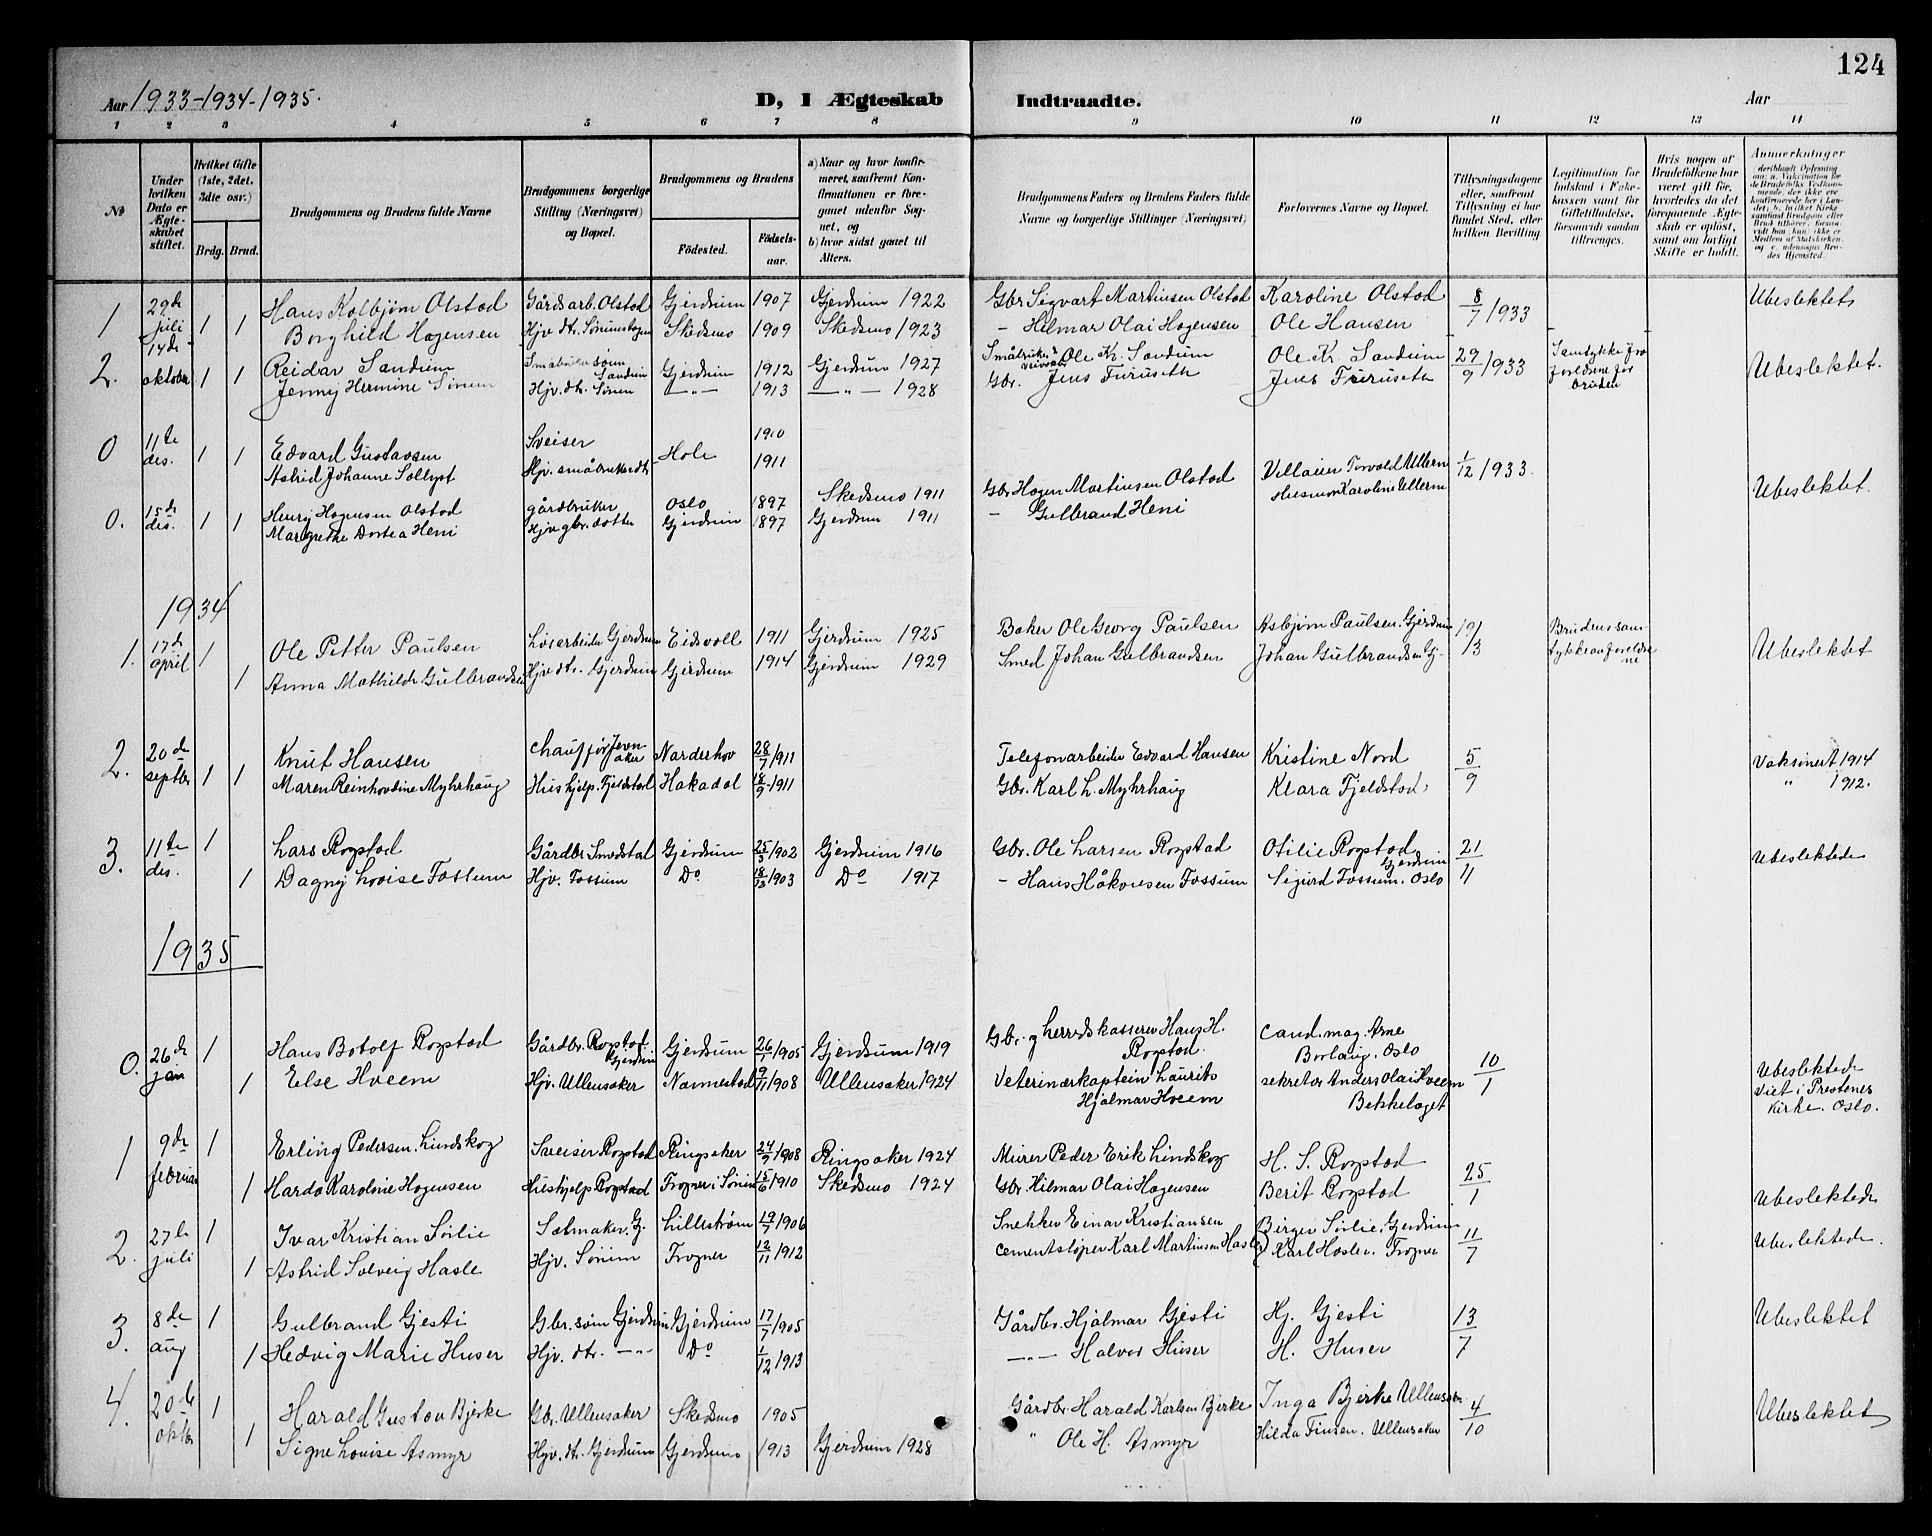 124
Aar 1933-1934-1935.
D, I Ægteskab
Indtraadte.
Aar
1 2 3 4 5 6 7 8 9 10 11 12 13 14
№
Under hvilken Dato er Ægteskabet stiftet.
Hvilket Gifte (1ste, 2det, 3die osv.)
Brdg. Brud.
Brudgommens og Brudens fulde Navne
Brudgommens borgerlige Stilling (Næringsvei) og Bopæl.
Brudgommens og Brudens
Födested. Födselsaar.
a) Naar og hvor konfirmeret, saafremt Konfirmationen er foregaaet udenfor Sognet, og
b) hvor sidst gaaet til Alters.
Brudgommens Faders og Brudens Faders fulde Navne og borgerlige Stillinger (Næringsvei)
Forlovernes Navne og Bopæl.
Tillysningsdagene eller, saafremt Tillysning ei har fundet Sted, efter hvilken Bevilling
Legitimation for Indskud i Enkekassen samt for Giftetilladelse, forsaavidt saadan tiltrænges.
Hvis nogen af Brudefolkene har været gift för, hvorledes da det foregaaende Ægteskab er oplöst, samt om lovligt Skifte er holdt.
Anmerkninger
1 29de juli 1 1 Hans Kolbjørn Olstad Gårdsarb. Olstad Gjerdrum 1907 Gjerdrum 1922 Gbr Segvart Martinsen Olstad Karoline Olstad 8/7 1933 Ubeslektet
Borghild Hagensen Hjv. dt. Skedsmo 1909 Skedsmo 1923 - Hilmar Olai Hagensen Ole Hansen
2. 14de oktober 1 1 Reidar Sandum Småbrukersønn Sandum Gjerdrum 1912 Gjerdrum 1927 Småbruker Ole Kr. Sandum Ole Kr Sandum 29/9 1933 Samtykke fra foreldrene for bruden Ubeslektet.
Jenny Hermine Sønum Hjv. dt. Sønum -"- 1913 -"- 1928 Gbr. Jens Furuseth Jens Furuseth
0 11te des. 1 1 Edvard Gustavsen Sveiser Hole 1910
Astrid Johanne Sollyst Hjv. småbrukerdt. 1911
0. 15de des. 1 1 Henry Hagensen Olstad gårdbruker Oslo 1897 Skedsmo 1911 Gbr Hagen Martinsen Olstad Torvald Ullern 1/12 1933. Ubeslektet.
Margrethe Dortea Heni Hjv gbr. datter Gjerdrum 1897 Gjerdrum 1911 - Gulbrand Heni Karoline Ullern
1934
1. 17de april 1 Ole Petter Paulsen Løsarbeider Gjerdrum Eidsvoll 1911 Gjerdrum 1925 Baker Ole Georg Paulsen Asbjørn Paulsen. Gjerdrum 19/3 Brudens samtykke av foreldrene Ubeslektet
1 Anna Mathilde Gulbrandsen Hjv dtr. Gjerdrum Gjerdrum 1914 Gjerdrum 1929 Smed Johan Gulbrandsen Johan Gulbrandsen Gj-
2. 20de septbr 1 1 Knut Hansen Chauffør Jevnaker Narderhov 28/7 1911 Telefonarbeider Edvard Hansen Kristine Nord 5/9 Vaksinert 1914
Maren Reinhovdine Myhrhaug Hushjelp. Fjeldstad Hakadal 18/9 1911 Gbr. Karl L. Myhrhaug Klara Fjeldstad. " 1912.
3. 11te des. 1 Lars Rogstad Gårdbr. Smedstad Gjerdrum 25/3 1902 Gjerdrum 1916 Gbr. Ole Larsen Rogstad Otilie Rogstad Gjerdrum 21/11 Ubeslektede
1 Dagny Lovise Fossum Hjv. Fossum Do 18/12 1903 Do 1917 - Hans Håkonsen Fossum Sigurd Fossum. Oslo
1935
0. 26de jan 1 Hans Botolf Rogstad Gårdbr. Rogstad Gjerdrum Gjerdrum 26/1 1905 Gjerdrum 1919 Gbr. og herredskasserer Hans H. Rogstad. Cand. mag. Arne Oslo 10/1 Ubeslektede
1 Else Hveem Hjv. Ullensaker Nannestad 9/11 1908 Ullensaker 1924 Veterinærkaptein Laurits Hjalmar Hveem sekretær Anders Olai Hveem Bekkelaget Viet i Prestenes Kirke. Oslo.
1 9de februar 1 Erling Pedersen Lindskog Sveiser Rogstad Ringsaker 24/9 1908 Ringsaker 1924 Murer Peder Erik Lindskog H. S. Rogstad 25/1 Ubeslektede
1 Harda Karoline Hagensen Hushjelp Rogstad Frogner i Sørum 15/6 1910 Skedsmo 1924 Gbr. Hilmar Olai Hagensen Berit Rogstad
2. 27de juli 1 Ivar Kristian Sørlie Salmaker. Gj. Lillestrøm 19/7 1906 Snekker Einar Kristiansen Birger Sørlie. Gjerdrum 11/7 Ubeslektede.
1 Astrid Solveig Hasle Hjv. Sørum Frogner 12/11 1912 Cementstøper Karl Martinsen Hasle Karl Hasle. Frogner
3. 8de aug 1 Gulbrand Gjesti Gbr. sønn Gjerdrum Gjerdrum 17/7 1905 Gårdbr. Hjalmar Gjesti Hj. Gjesti 13/7 Ubeslektet
1 Hedvig Marie Huser Hjv. dtr. -"- Do 1/12 1913 -"- Halvor Huser H. Huser
4. 20de oktbr 1 Harald Gustav Bjerke Gbr. Ullensaker Skedsmo 1905 Gårdbr. Harald Karlsen Bjerke Inga Bjerke Ullensaker 4/10 Ubeslektet
1 Signe Lovise Asmyr Hjv. dt. Gjerdrum Gjerdrum 1913 Gjerdrum 1928 " Ole H. Asmyr Hilda Finsen. Ullensaker